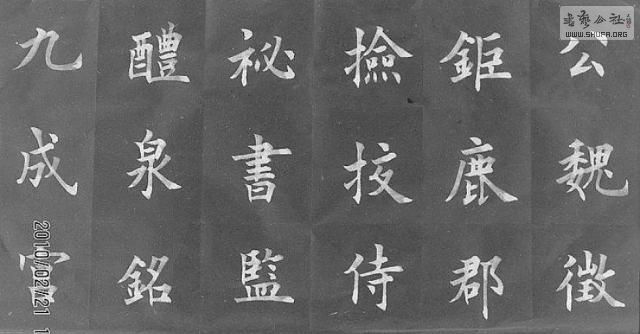 九成宮
醴泉銘
祕書監
撿挍侍
鉅鹿郡
公魏徵
書藝公社
WWW.SHUFA.ORG
2010/02/21 1